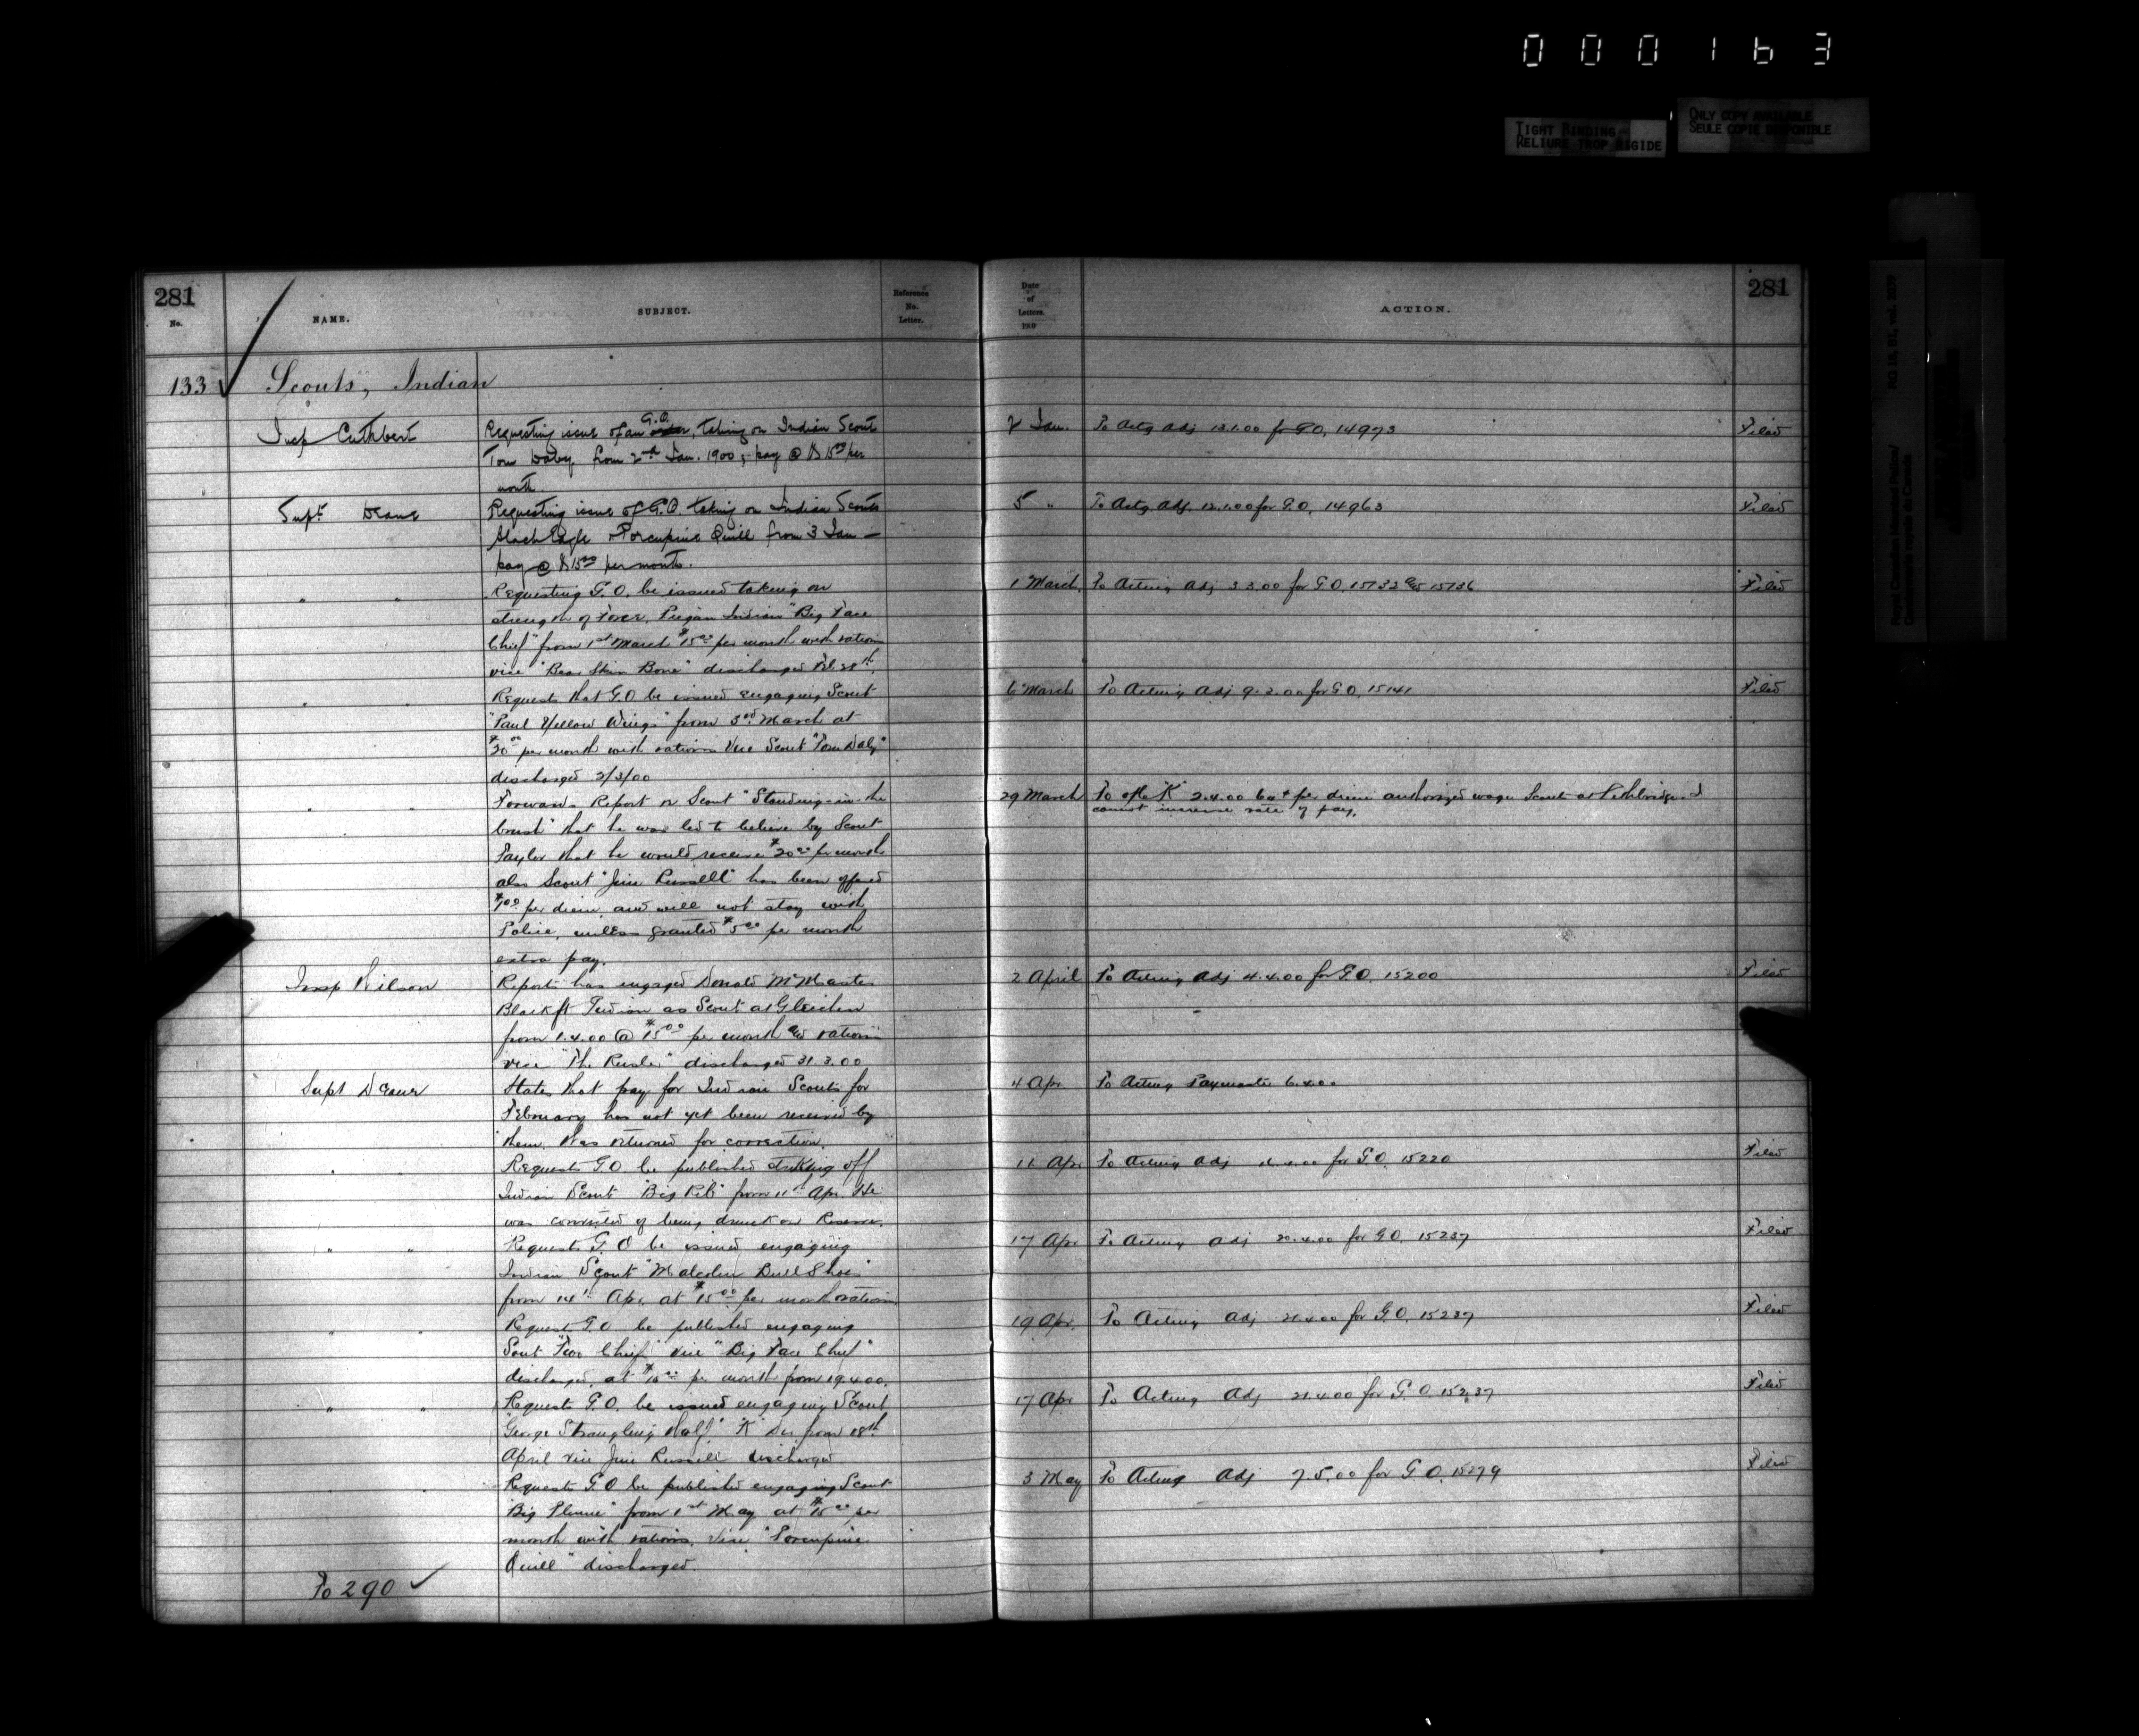 000163
TIGHT BINDING
RELIURE TROP RIGIDE
ONLY COPY AVAILABLE
SEULE COPIE DISPONIBLE
Royal Canadian Mounted Police/
Gendarmerie royale du Canada
RG 18, B1, vol. 2039
281
No.
NAME.
SUBJECT.
Reference
No.
Letter.
133 Scouts, Indian
Insp Cuthbert
Requesting issue of an G.O., taking on Indian Scout
Tom Daly from 2nd Jan. 1900; pay @ $15.00 per
month
Supt Deane
Requesting issue of G.O. taking on Indian Scouts
Black Eagle & Porcupine Quill from 3 Jan —
pay @ $15.00 per month.
" "
Requesting G.O. be issued taking on
strength of Force, Piegan Indian "Big Face
Chief" from 1st March $15.00 per month with rations
vice "Bear Skin Bone" discharged Feb 28th.
" "
Requests that G.O be issued engaging Scout
"Paul Yellow Wings" from 3rd March at
per month with rations vice Scout "Tom Daly"
discharged 2/3/00
" "
Forwards Report on Scout "Standing-in-the
brush" that he was led to believe by Scout
Taylor that he would receive $20.00 per month
also Scout "Jim Russell" has been offered
$1.00 per diem, and will not stay with
Police, unless granted $5.00 per month
extra pay.
Insp Wilson
Reports has engaged Donald McMaster
Blackft Indian as Scout at Gleichen
from 1.4.00 @ $15.00 per month and rations
vice "The Rusler" discharged 31.3.00
Supt Deane
States that pay for Indian Scouts for
February has not yet been received by
them. Was returned for correction.
" "
Requests G.O be published striking off
Indian Scout "Big Rib" from 11th Apr. He
was convicted of being drunk on Reserve.
" "
Requests G.O be issued engaging
Indian Scout "Malcolm Bull Shoe"
from 14th Apr. at $15.00 per month rations
" "
Request G.O be published engaging
Scout "Two Chief" vice "Big Face Chief"
discharged, at $15.00 per month from 19.4.00.
" "
Requests G.O. be issued engaging Scout
"George Strangling Half" "K" Div from 18th
April vice Jim Russell discharged
" "
Requests G.O be published engaging Scout
"Big Plume" from 1st May at $15.00 per
month with rations. Vice "Porcupine
Quill" discharged.
To 290
Date
of
Letters.
190
ACTION.
281
2 Jan. To Actg Adj 13.1.00 for GO, 14973 Filed
5 " To Actg. Adj. 12.1.00 for G.O, 14963 Filed
1 March. To Acting Adj 3.3.00 for G.O, 15132 and 15136 Filed
6 March To Acting Adj 9.3.00 for G.O, 15141 Filed
29 March To offr "K" 2.4.00 per diem authorized wage Scouts at Lethbridge. I
cannot increase rate of pay.
2 April To Acting Adj 4.4.00 for G.O. 15200 Filed
4 Apr To Acting Paymaster 6.4.00
11 Apr To Acting Adj for G.O. 15220 Filed
17 Apr To Acting Adj 20.4.00 for G.O. 15237 Filed
19 Apr. To Acting Adj 21.4.00 for G.O. 15237 Filed
17 Apr To Acting Adj 21.4.00 for G.O 15237 Filed
3 May To Acting Adj 7.5.00 for G.O. 15279 Filed